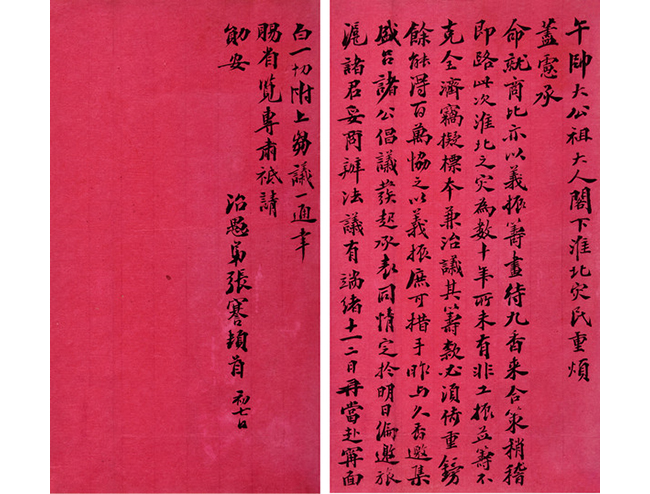 午帥大公祖大人閣下淮北災民重煩
藎慮承
命就商比亦以義振籌畫待久香來合策稍稽
即路此次淮北之災為數十年所未有非工振並籌不
克全濟竊擬標本兼治議其以籌款必須倚重鎊
餘能得百萬協之以義振庶可措手昨与久香邀集
盛呂諸公倡議發起承表同情定於明日徧邀旅
滬諸君妥商辦法議有端緒十一二日再當赴甯面
白一切附上芻議一通幸
賜省覽專肅祗請
勛安
治愚弟張謇頓首 初七日